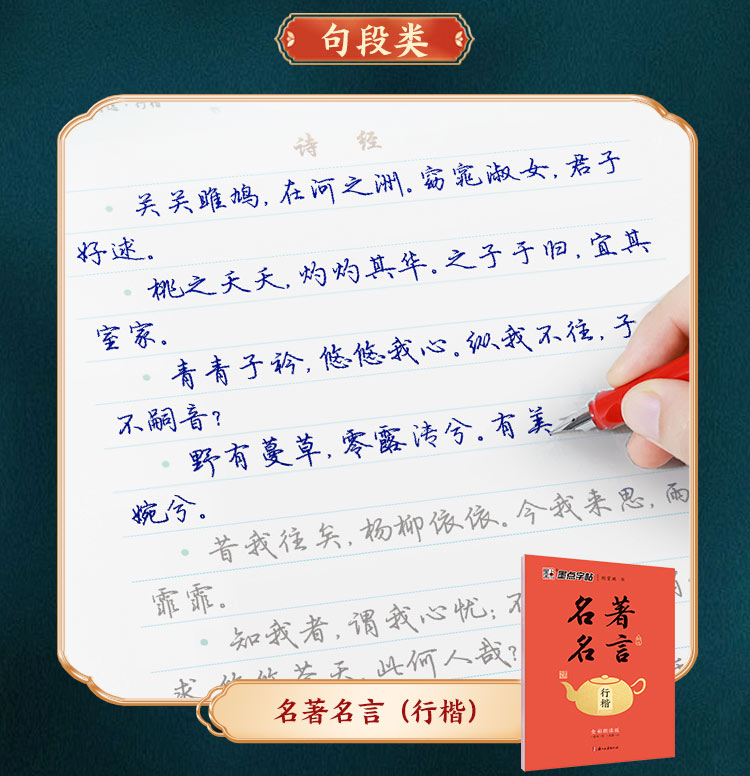 句段类
行楷
诗 经
关关雎鸠，在河之洲。窈窕淑女，君子
好逑。
桃之夭夭，灼灼其华。之子于归，宜其
室家。
青青子衿，悠悠我心。纵我不往，子
不嗣音？
野有蔓草，零露漙兮。有美
婉兮。
昔我往矣，杨柳依依。今我来思，雨
霏霏。
知我者，谓我心忧；不
求。悠悠苍天，此何人哉？
墨点字帖
名著
名言
行楷
名著名言（行楷）